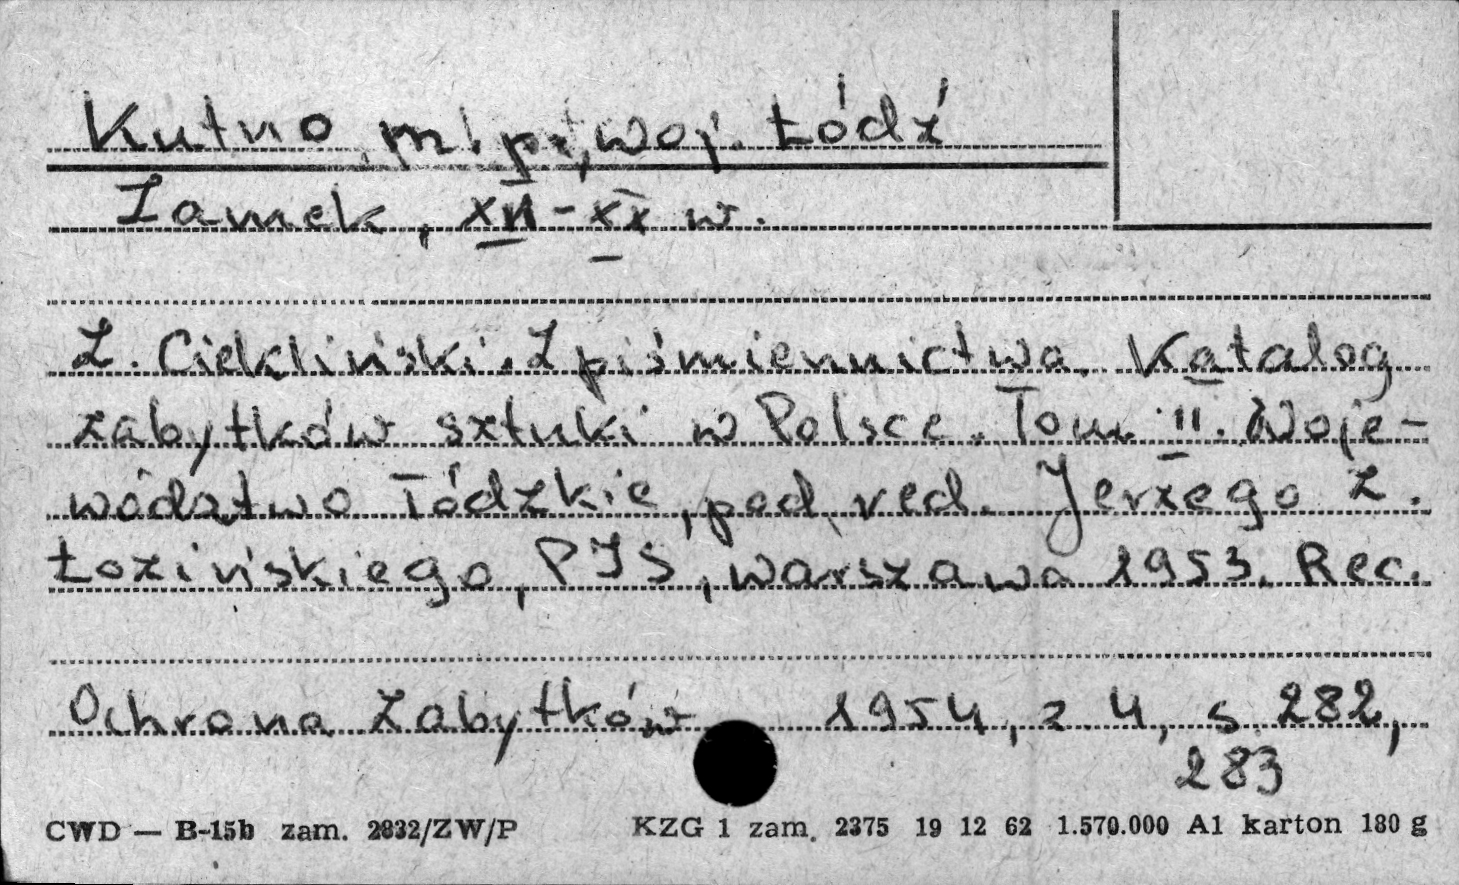 Kutno, m. pz, woj. Łódź
Zamek, XVI-XX w.
Z. Ciekliński. Z piśmiennictwa. Katalog
zabytków sztuki w Polsce. Tom II. Woje-
wództwo łódzkie, pod red. Jerzego Z.
Łozińskiego, PIS, Warszawa 1953. Rec.
Ochrona Zabytków 1954, z 4, s. 282,
283
CWD — B-15b zam. 2832/ZW/P KZG 1 zam. 2375 19 12 62 1.570.000 A1 karton 180 g